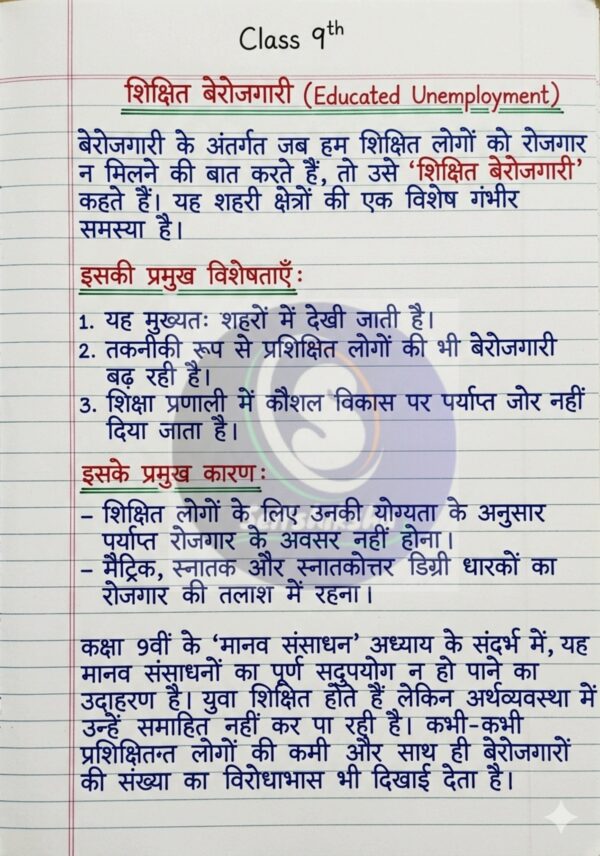 Class 9th
शिक्षित बेरोजगारी (Educated Unemployment)
बेरोजगारी के अंतर्गत जब हम शिक्षित लोगों को रोजगार
न मिलने की बात करते हैं, तो उसे ‘शिक्षित बेरोजगारी’
कहते हैं। यह शहरी क्षेत्रों की एक विशेष गंभीर
समस्या है।
इसकी प्रमुख विशेषताएँ:
1. यह मुख्यतः शहरों में देखी जाती है।
2. तकनीकी रूप से प्रशिक्षित लोगों की भी बेरोजगारी
बढ़ रही है।
3. शिक्षा प्रणाली में कौशल विकास पर पर्याप्त जोर नहीं
दिया जाता है।
इसके प्रमुख कारण:
– शिक्षित लोगों के लिए उनकी योग्यता के अनुसार
पर्याप्त रोजगार के अवसर नहीं होना।
– मैट्रिक, स्नातक और स्नातकोत्तर डिग्री धारकों का
रोजगार की तलाश में रहना।
कक्षा 9वीं के ‘मानव संसाधन’ अध्याय के संदर्भ में, यह
मानव संसाधनों का पूर्ण सदुपयोग न हो पाने का
उदाहरण है। युवा शिक्षित होते हैं लेकिन अर्थव्यवस्था में
उन्हें समाहित नहीं कर पा रही है। कभी-कभी
लोगों की कमी और साथ ही बेरोजगारों
की संख्या का विरोधाभास भी दिखाई देता है।